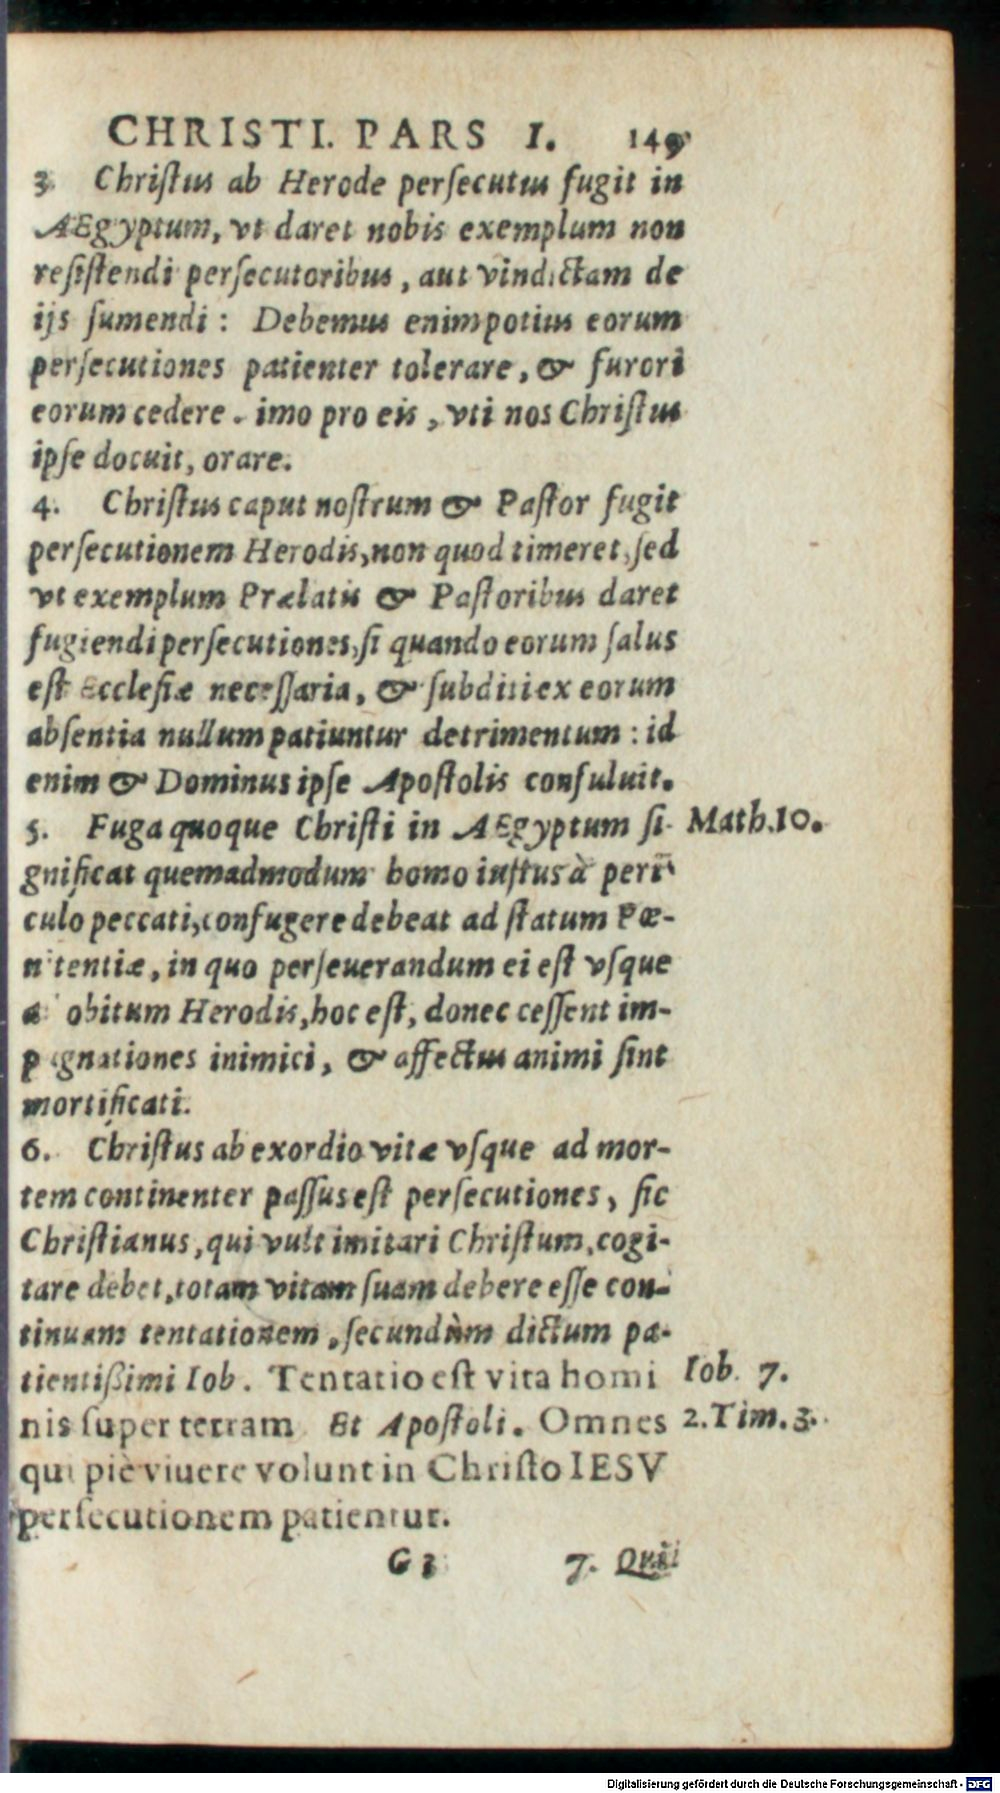 CHRISTI. PARS I. 149
3. Christus ab Herode persecutus fugit in
AEgyptum, vt daret nobis exemplum non
resistendi persecutoribus, aut vindictam de
ijs sumendi: Debemus enim potius eorum
persecutiones patienter tolerare, & furori
eorum cedere. imo pro eis, vti nos Christus
ipse docuit, orare.
4. Christus caput nostrum & Pastor fugit
persecutionem Herodis, non quod timeret, sed
vt exemplum Prælatis & Pastoribus daret
fugiendi persecutiones, si quando eorum salus
est Ecclesiæ necessaria, & subditi ex eorum
absentia nullum patiuntur detrimentum: id
enim & Dominus ipse Apostolis consuluit.
5. Fuga quoque Christi in AEgyptum si- Math.10.
gnificat quemadmodum homo iustus à peri-
culo peccati, confugere debeat ad statum Pœ-
nitentiæ, in quo perseuerandum ei est vsque
a obitum Herodis, hoc est, donec cessent im-
pugnationes inimici, & affectus animi sint
mortificati.
6. Christus ab exordio vitæ vsque ad mor-
tem continenter passus est persecutiones, sic
Christianus, qui vult imitari Christum, cogi-
tare debet, totam vitam suam debere esse con-
tinuam tentationem, secundùm dictum pa-
tientißimi Iob. Tentatio est vita homi Iob. 7.
nis super terram Et Apostoli. Omnes 2.Tim.3.
qui piè viuere volunt in Christo IESV
persecutionem patientur.
G 3 7. Qui
Digitalisierung gefördert durch die Deutsche Forschungsgemeinschaft - DFG